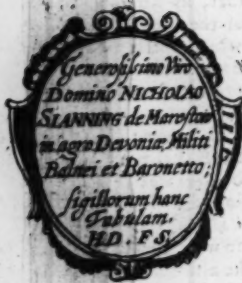 Generosissimo Viro
Domino NICHOLAO
SLANNING de Marestow
in agro Devoniæ Militi
Balnei et Baronetto;
sigillorum hanc
Tabulam.
H.D. F S.